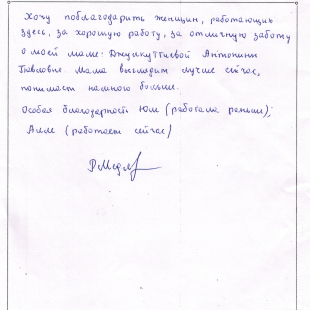 Хочу поблагодарить женщин, работающих
здесь, за хорошую работу, за отличную заботу
о моей маме - Антонине
Павловне. Мама выглядит лучше сейчас,
понимает намного больше.
Особая благодарность Юле (работала раньше),
Алле (работает сейчас)